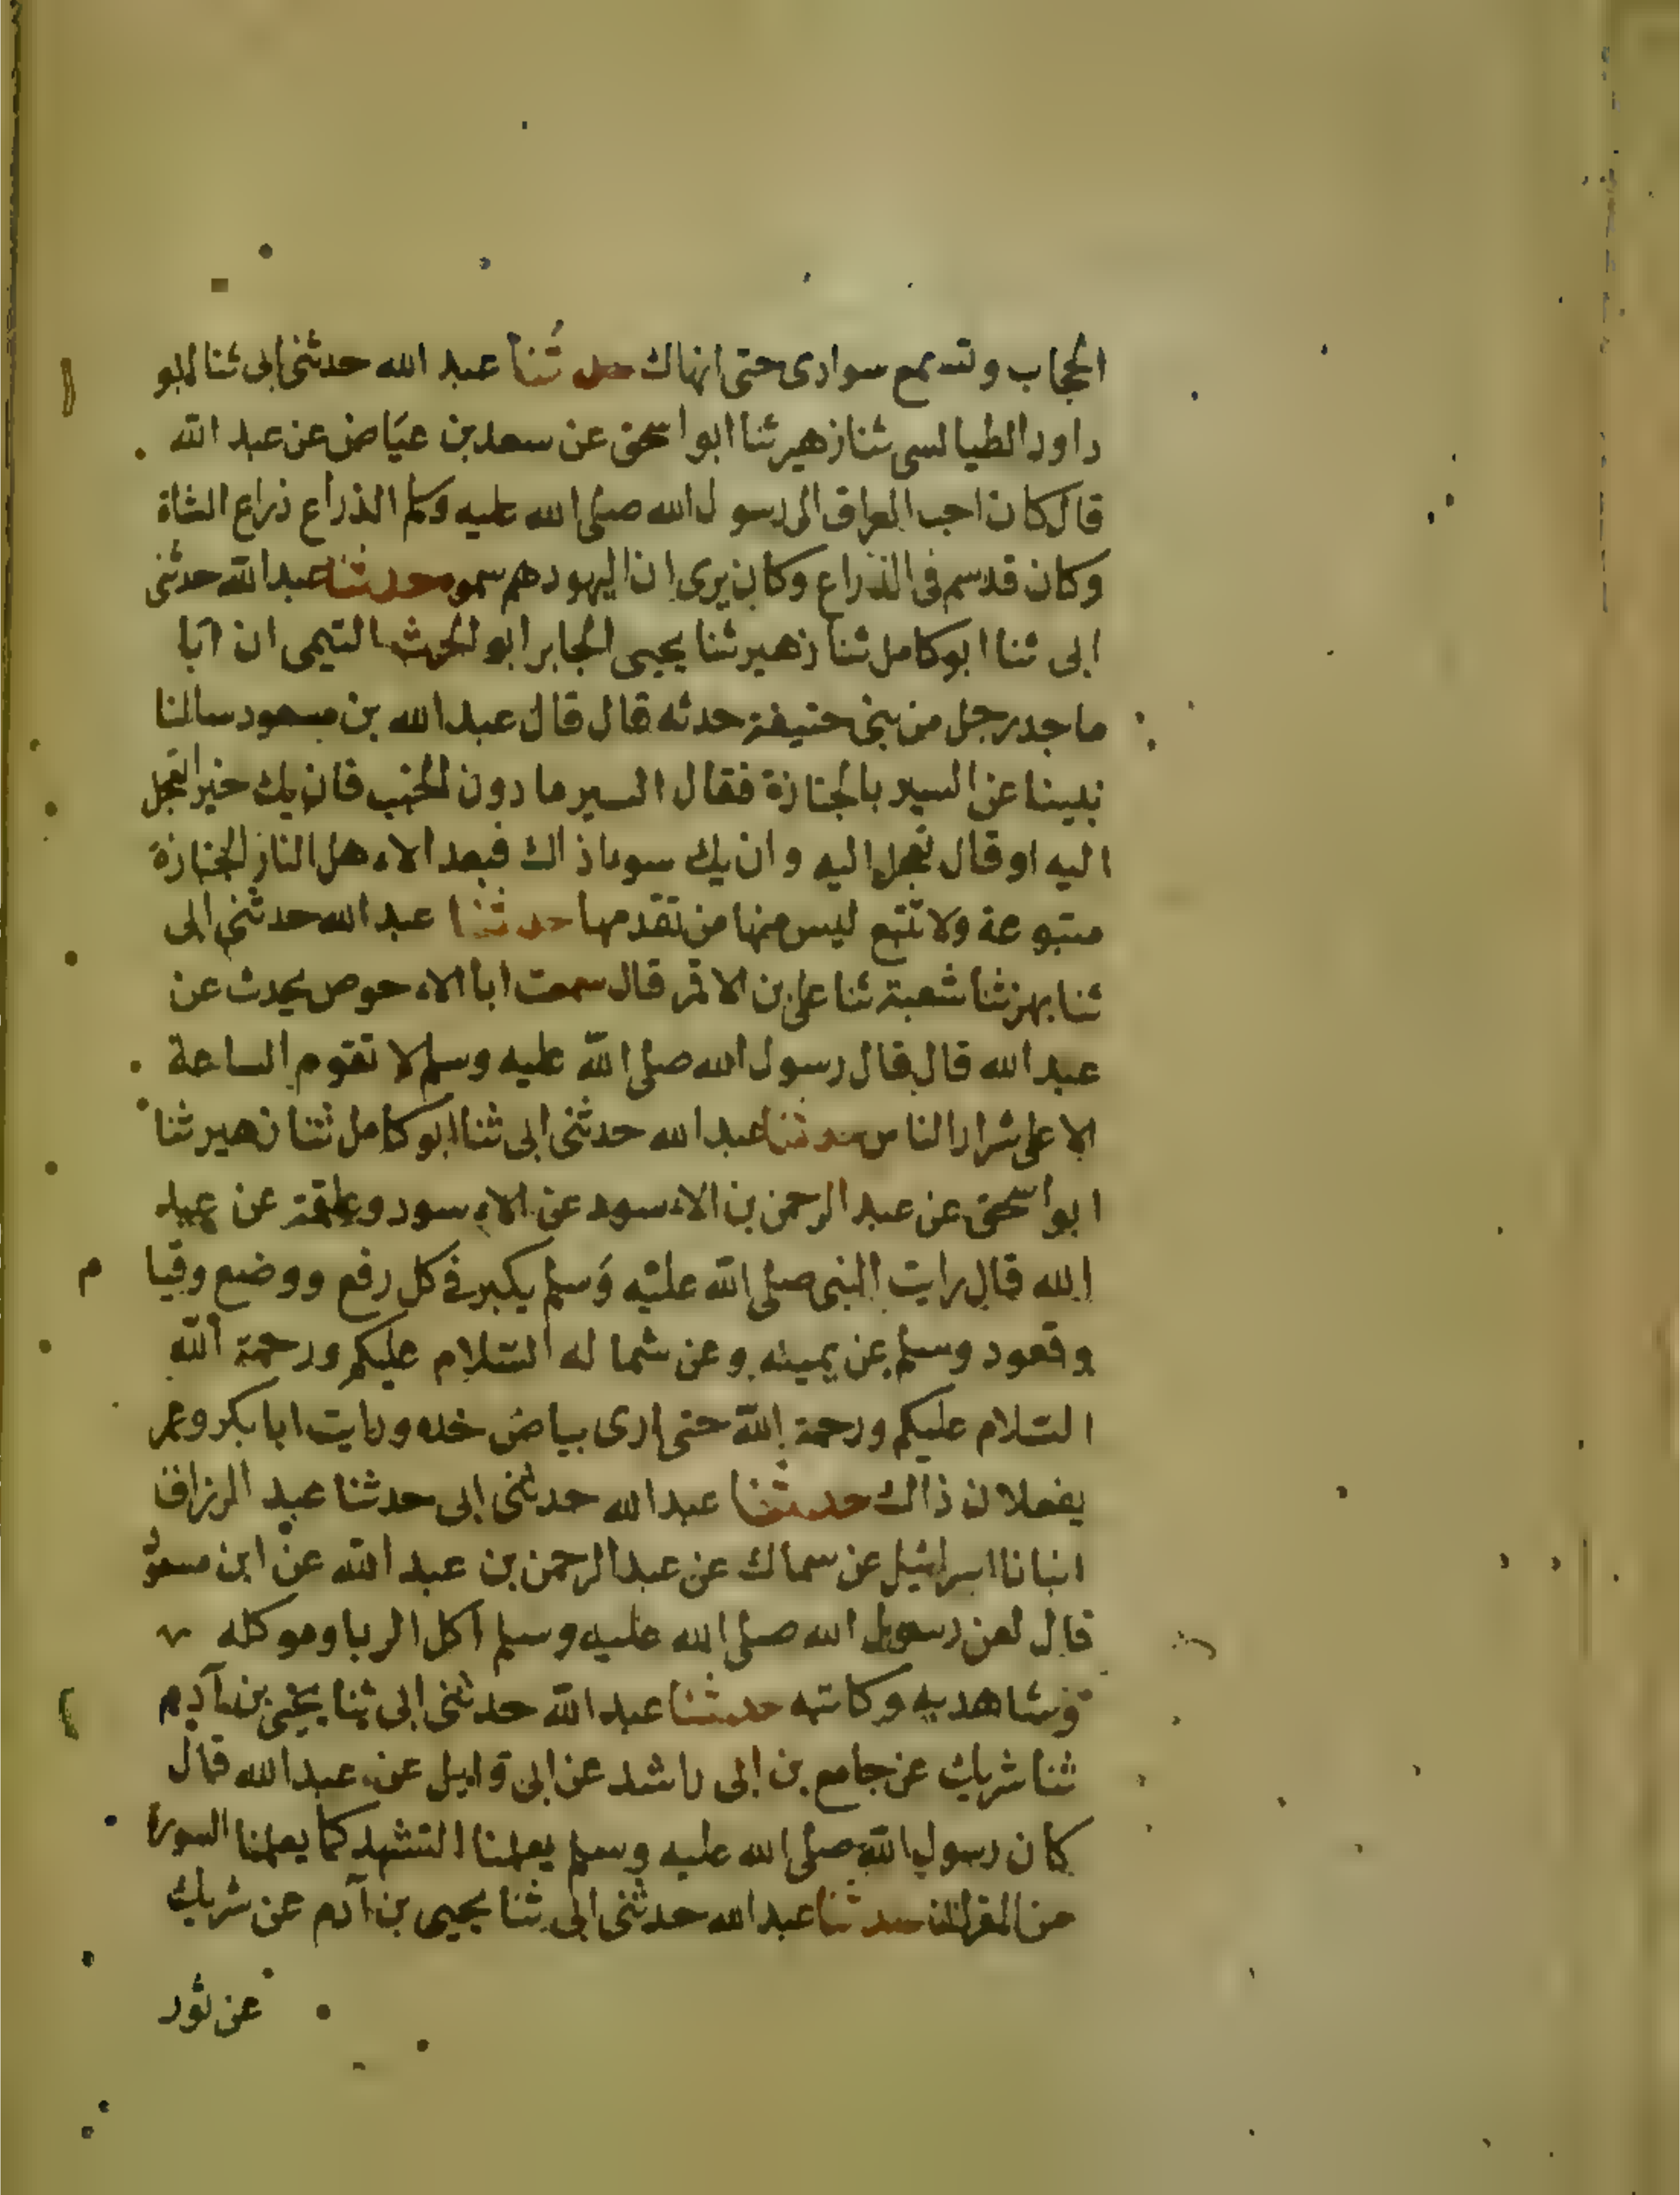 الحجاب وتسمع سوادى حتى انهاك حدثنا عبد الله حدثنى ابى ثنا ابو
داود الطيالسى ثنا زهير ثنا ابو اسحق عن سعد بن عيَاض عن عبد الله
قال كان احب العراق الى رسول الله صلى الله عليه وسلم الذراع ذراع الشاة
وكان قد سم فى الذراع وكان يرى ان اليهود هم سموه حدثنا عبد الله حدثنى
ابى ثنا ابو كامل ثنا زهير ثنا يحيى الجابر ابو الحرث التيمى ان ابا
ماجد رجل من بنى حنيفة حدثه قال قال عبد الله بن مسعود سالنا
نبينا عن السير بالجنازة فقال السير ما دون الخبب فان يك خير العجل
اليه او قال تعجل اليه وان يك سوىاذاك فبعد الاءهل النار الجنازة
متبوعة ولا تتبع ليس منها من تقدمها حدثنا عبد الله حدثنى ابى
ثنا بهز ثنا شعبة ثنا على بن الاقمر قال سمعت ابا الاءحوص يحدث عن
عبد الله قال قال رسول الله صلى الله عليه وسلم لا تقوم الساعة
الا على شرار الناس حدثنا عبد الله حدثنى ابى ثنا ابو كامل ثنا زهير ثنا
ابو اسحق عن عبد الرحمن بن الاءسود عن الاءسود وعلقمة عن عبد
الله قال رايت النبى صلى الله عليه وَسلم يكبر فى كل رفع ووضع وقيا م
وقعود وسلم عن يمينه وعن شماله السّلام عليكم ورحمة اللّه
السّلام عليكم ورحمة اللّه حتى ارى بياض خده ورايت ابا بكر وعمر
يفعلان ذالك حدثنا عبد الله حدثنى ابى حدثنا عبد الرزاق
انبانا اسرائيل عن سماك عن عبد الرحمن بن عبد الله عن ابن مسعود
قال لعن رسول الله صلى الله عليه وسلم آكل الربا وموكله
وشاهديه وكاتبه حدثنا عبد الله حدثنى ابى ثنا يحيى بن آدم
ثنا شريك عن جامع بن ابى راشد عن ابى وايل عن عبد الله قال
كان رسول الله صلى الله عليه وسلم يعلمنا التشهد كما يعلمنا السورة
من القران حدثنا عبد الله حدثنى ابى ثنا يحيى بن آدم عن شريك
عن ثور